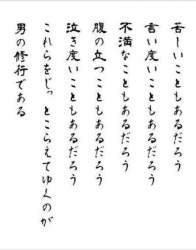 苦しいこともあるだろう
言い度いこともあるだろう
不満なこともあるだろう
腹の立つこともあるだろう
泣き度いこともあるだろう
これらをじっとこらえてゆくのが
男の修行である